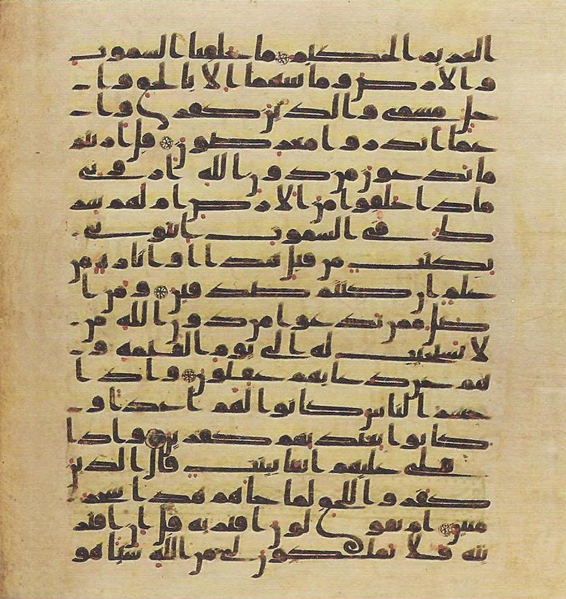 العزيز الحكيم ما خلقنا السموت
والارض وما بينهما الا بالحق وا
جل مسمى والذين كفروا
عما انذروا معرضون قل اريتم
ما تدعون من دون الله اروني
ماذا خلقوا من الارض ام لهم شر
ك في السموت ايتوني
بكتب من قبل هذا او اثرة من
علم ان كنتم صدقين ومن ا
ضل ممن يدعوا من دون الله من
لا يستجيب له الى يوم القيمة و
هم عن دعايهم غفلون واذا
حشر الناس كانوا لهم اعداء و
كانوا بعبدتهم كفرين واذا
تتلى عليهم ايتنا بينت قال الذين
كفروا للحق لما جاهم هذا سحر
مبين ام يقولون افتريه قل ان افتر
يته فلا تملكون لي من الله شيا هو